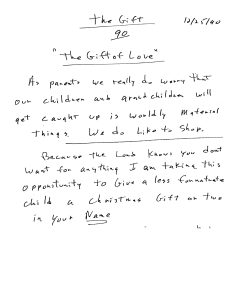 The Gift 12/25/90
90
"The Gift of Love"
As parents we really do worry that
our children and grand children will
get caught up is worldly Material
Things. We do Like to Shop.
Because the Lord knows you dont
want for anything I am taking this
opportunity to Give a less fortunate
child a Christmas Gift or two
in your Name